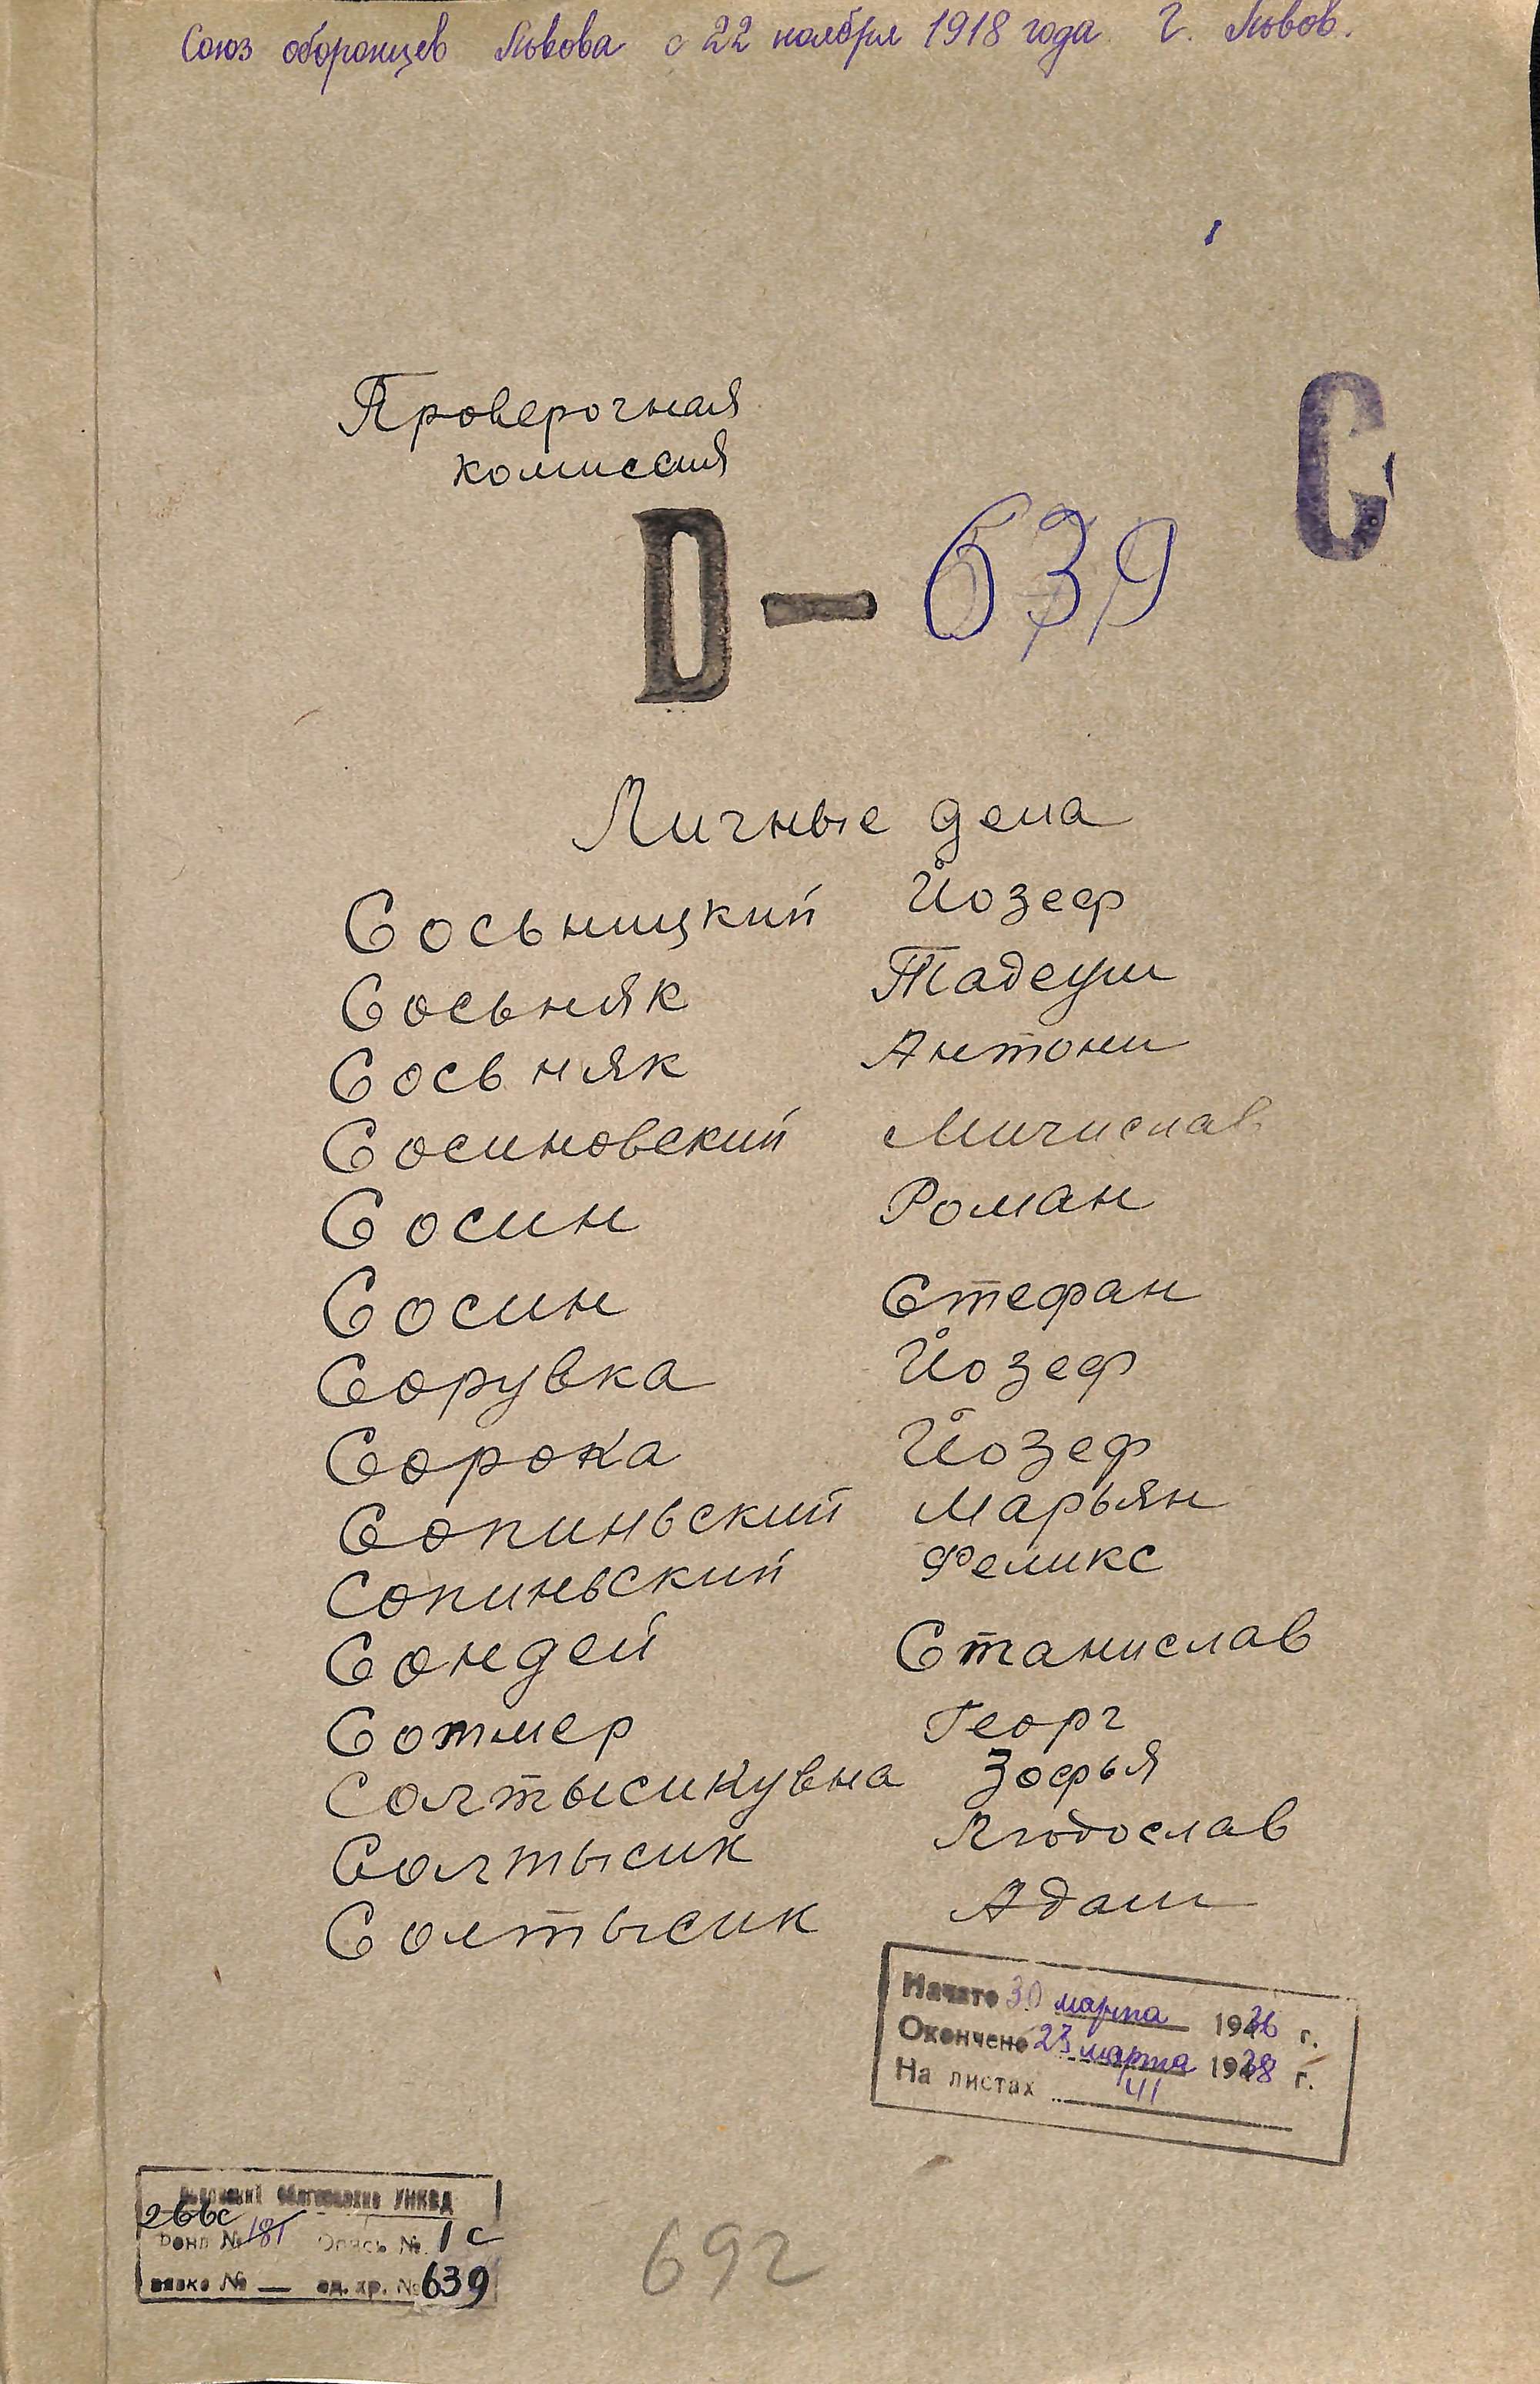 Союз оборонцев Львова с 22 ноября 1918 года. г. Львов.
Проверочная
комиссия
С
D — 639
Личные дела
Сосьницкий Йозеф
Сосьняк Тадеуш
Сосьняк Антони
Сосиновский Мичислав
Сосин Роман
Сосин Стефан
Сорувка Йозеф
Сорока Йозеф
Сопиньский Марьян
Сопиньский Феликс
Сондей Станислав
Сотмер Георг
Солтысикувна Зофья
Солтысик Людослав
Солтысик Адам
Начато 30 марта 1936 г.
Окончено 23 марта 1938 г.
На листах 41
Львовский Облгосархив УНКВД
266с
Фонд № 181 Опись № 1с
вязка № — ед. хр. № 639
692